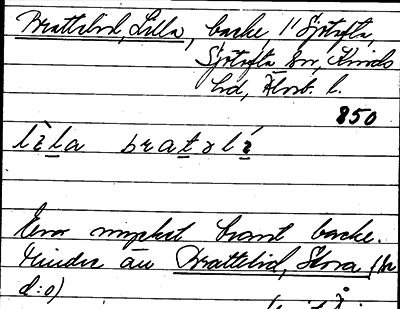 Brattelid, Lilla, backe, 1/1 Sjötofta,
Sjötofta sn, Kinds
hd, Älvsb. l.
850
lìla bratəlí
En mycket brant backe.
Mindre än Brattelid, Stora (se
d:o)